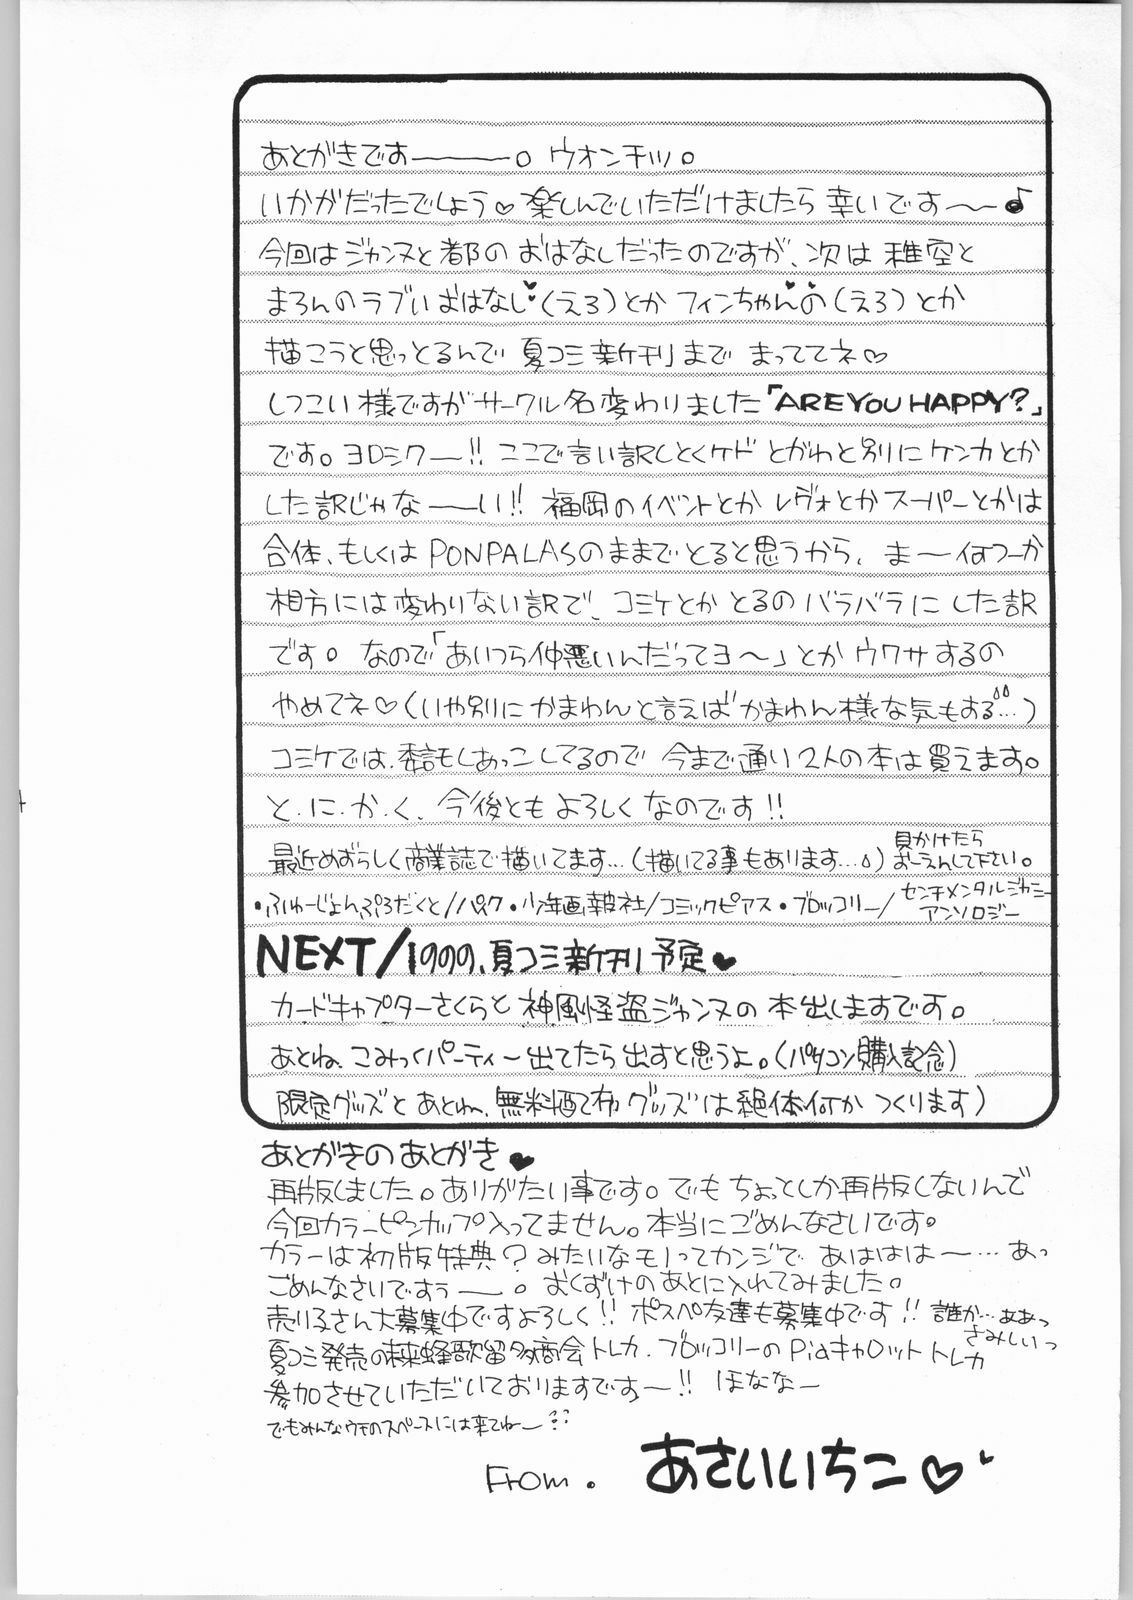 あとがきですー。ウオンチッ。
いかがだったでしょう♡楽しんでいただけましたら幸いです〜♪
今回はジャンヌと都のおはなしだったのですが、次は稚空と
まろんのラブいおはなし(えろ)とかフィンちゃんの(えろ)とか
描こうと思っとるんで夏コミ新刊までまっててネ♡
しつこい様ですがサークル名変わりました「ARE YOU HAPPY?」
です。ヨロシクー!!ここで言い訳しとくケドとがわと別にケンカとか
した訳じゃなーい!!福岡のイベントとかレヴォとかスーパーとかは
合体、もしくはPONPALASのままでとると思うから、まー何つーか
相方には変わりない訳で、コミケとかとるのバラバラにした訳
です。なので「あいつら仲悪いんだってヨ〜」とかウワサするの
やめてネ♡(いや別にかまわんと言えばかまわん様な気もする…)
コミケでは、委託もしあっこしてるので今まで通り2人の本は買えます。
と.に.か.く、今後ともよろしくなのです!!
最近めずらしく商業誌で描いてます…(描いてる事もあります…)見かけたらおしえて下さい。
・ふゅーじょんぷろだくと/パック・少年画報社/コミックピアス・ブロッコリー/センチメンタルジャニーアンソロジー
NEXT/1999、夏コミ新刊予定♥
カードキャプターさくらと神風怪盗ジャンヌの本出しますです。
あとね、こみっくパーティー出てたら出すと思うよ。(パソコン購入記念)
限定グッズとあとね、無料配布グッズは絶体何かつくります)
あとがきのあとがき♥
再版しました。ありがたい事です。でもちょっとしか再版しないんで
今回カラーピンナップ入ってません。本当にごめんなさいです。
カラーは初版特典?みたいなモノってカンジであははは〜…あっ
ごめんなさいですぅー。おくずけのあとに入れてみました。
売り子さん大募集中ですよろしく!!ポスペ友達も募集中です!!誰か…ああっさみしいっ
夏コミ発売の未来蜂歌留多商会トレカ、ブロッコリーのPiaキャロットトレカ
参加させていただいておりますですー!!ほななー
でもみんなウチのスペースには来てねー
From. あさいいちこ♡